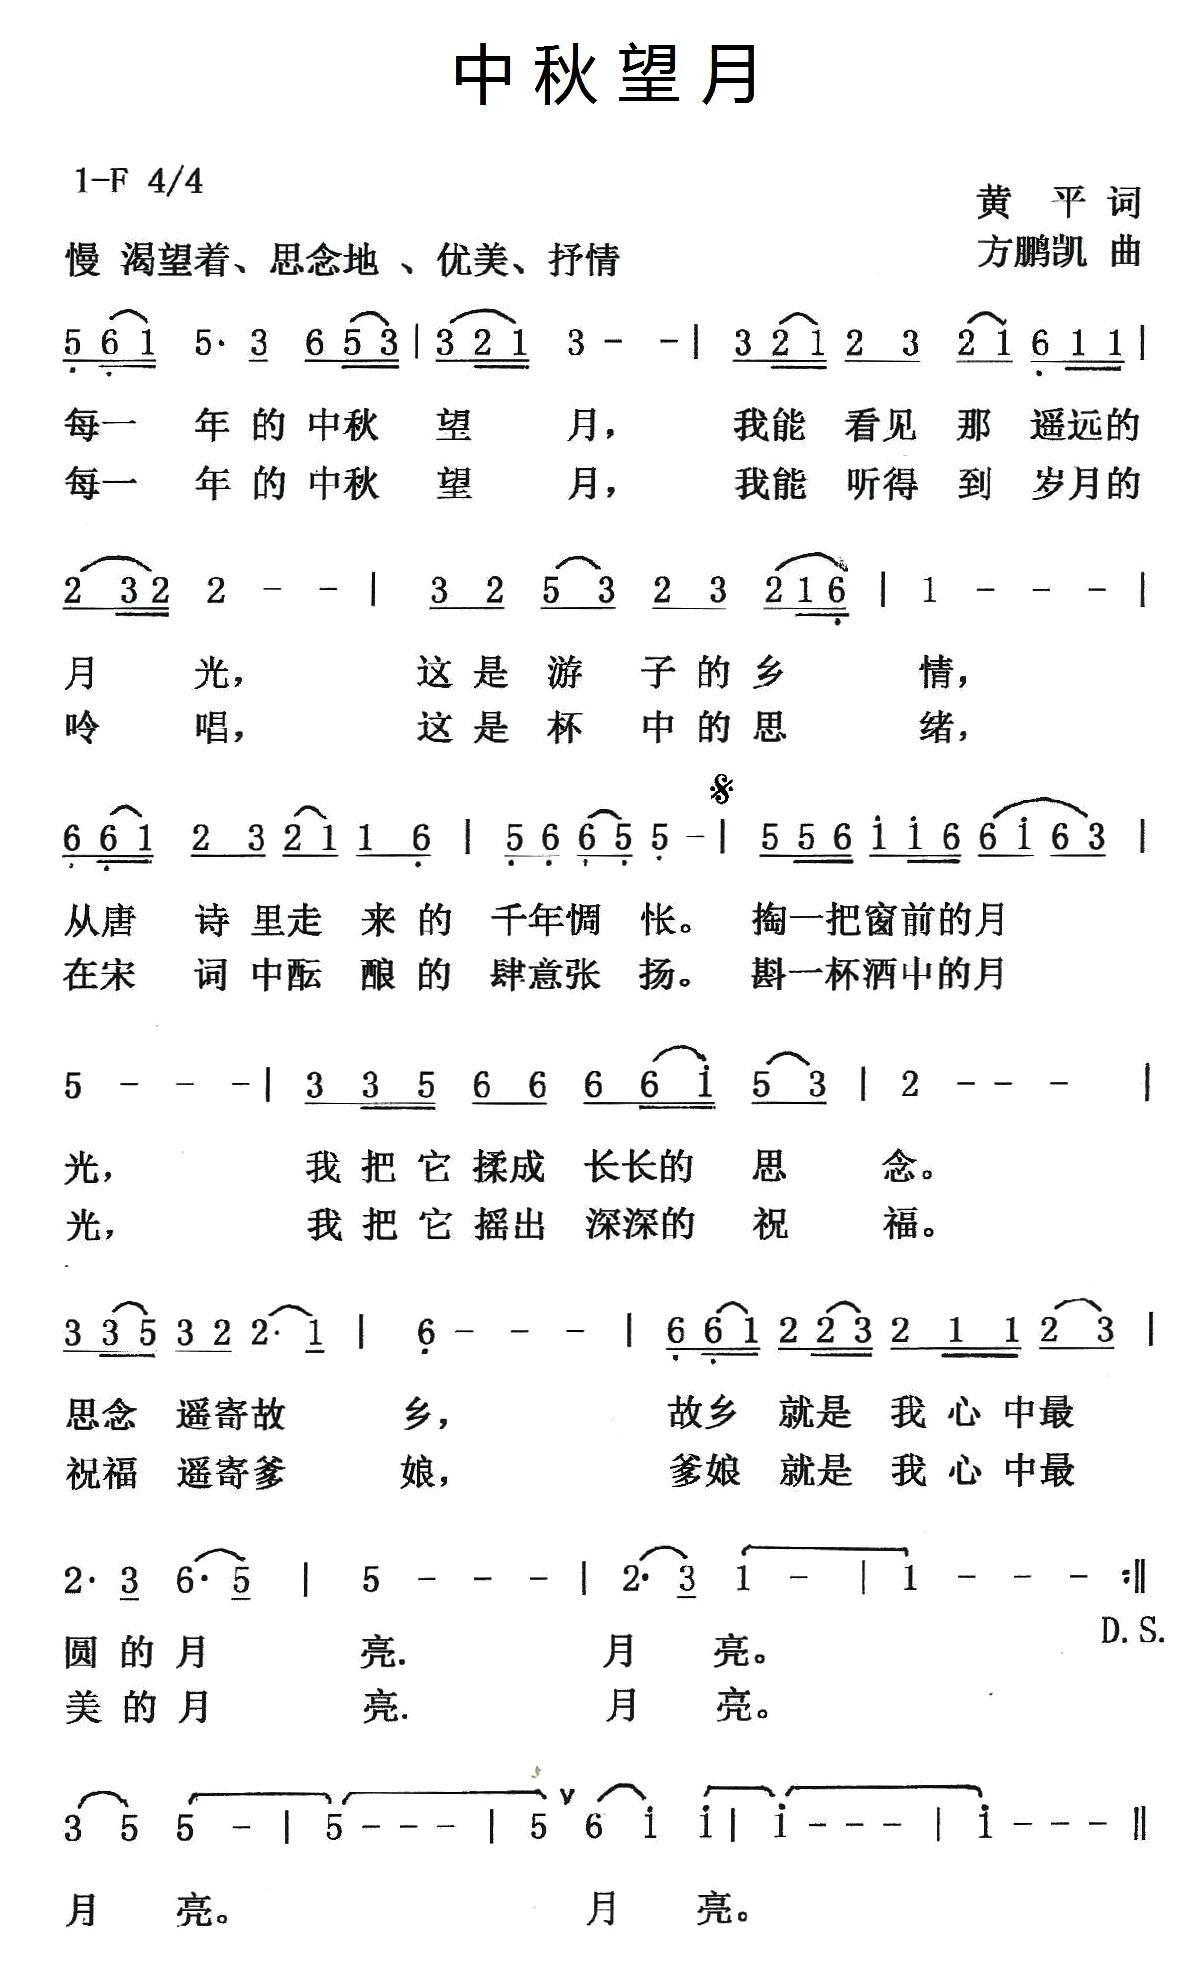 中秋望月
1-F 4/4
黄 平 词
慢 渴望着、思念地 、优美、抒情
方鹏凯 曲
5 6 1 5· 3 6 5 3 | 3 2 1 3 - - | 3 2 1 2 3 2 1 6 1 1 |
每一 年 的 中秋 望 月， 我能 看见 那 遥远的
每一 年 的 中秋 望 月， 我能 听得 到 岁月的
2 3 2 2 - - | 3 2 5 3 2 3 2 1 6 | 1 - - - |
月 光， 这 是 游 子 的 乡 情，
呤 唱， 这 是 杯 中 的 思 绪，
6 6 1 2 3 2 1 1 6 | 5 6 6 5 5 - | 𝄋 5 5 6 i i 6 6 i 6 3 |
从唐 诗 里走 来 的 千年惆 怅。 掏一把窗前的月
在宋 词 中酝 酿 的 肆意张 扬。 斟一杯酒中的月
5 - - - | 3 3 5 6 6 6 6 i 5 3 | 2 - - - |
光， 我 把 它 揉成 长长的 思 念。
光， 我 把 它 摇出 深深的 祝 福。
3 3 5 3 2 2· 1 | 6 - - - | 6 6 1 2 2 3 2 1 1 2 3 |
思念 遥寄故 乡， 故乡 就是 我 心 中最
祝福 遥寄爹 娘， 爹娘 就是 我 心 中最
2· 3 6· 5 | 5 - - - | 2· 3 1 - | 1 - - - :‖
D.S.
圆 的 月 亮. 月 亮。
美 的 月 亮. 月 亮。
3 5 5 - | 5 - - - | 5 v 6 i i | i - - - | i - - - ‖
月 亮。 月 亮。